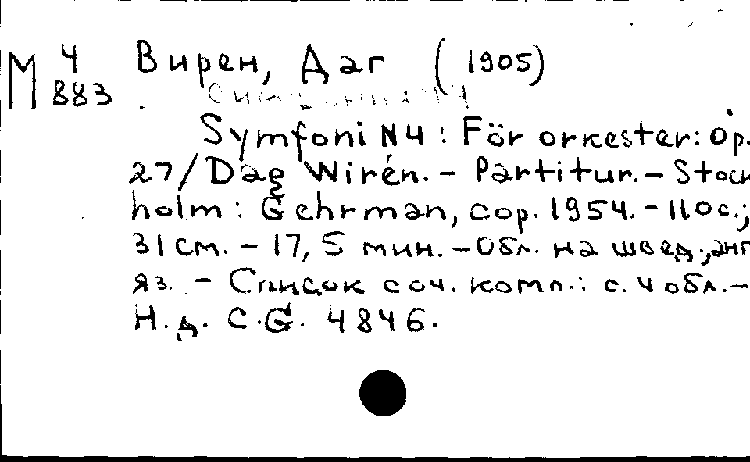 М 4 Вирен, Даг (1905)
883
Symfoni N4 : För orkester: Op.
27/Dag Wirén. – Partitur. – Stock
holm : Gehrman, cop. 1954. – 110с.;
31 см. – 17,5 мин. – Обл. на швед., анг
яз. – Список соч. комп.: с. 4 обл. –
Н.д. C.G. 4846.